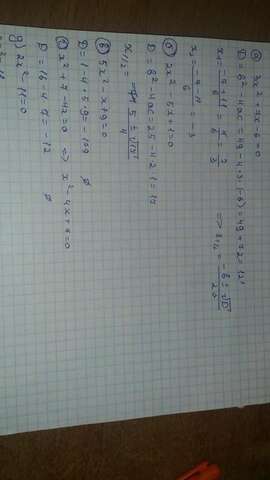 а) 3x² + 7x - 6 = 0
D = b² - 4ac = 49 - 4·3·(-6) = 49 + 72 = 121
x₁ = (-7 + 11)/6 = 4/6 = 2/3 => x₁,₂ = (-b ± √D)/2a
x₂ = (-7 - 11)/6 = -3
б) 2x² - 5x + 1 = 0
D = b² - 4ac = 25 - 4·2·1 = 17
x₁/₂ = (5 ± √17)/4
в) 5x² - x + 9 = 0
D = 1 - 4·5·9 = -179 ∅
г) x² + 7 - 4x = 0 => x² - 4x + 7 = 0
D = 16 - 4·7 = -12 ∅
д) 2x² - 11 = 0